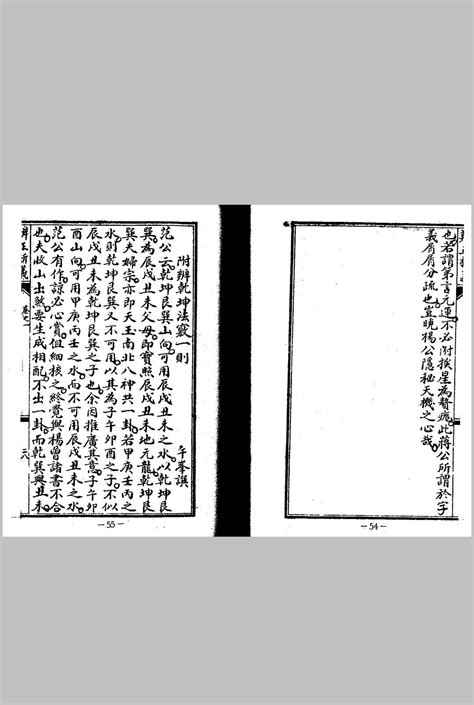 也若謂第言元運不必附挨星為贅疣此蔣公所謂於字
義屑屑分疏也豈曉楊公隱秘天機之心哉
— 54 —
附辨乾坤法竅一則
午峯撰
范公云乾坤艮巽山向可用辰戌丑未之水以乾坤艮
巽為辰戌丑未父母即寶照辰戌丑未地元龍乾坤艮
巽夫婦宗亦即天玉南北八神共一卦若甲庚壬丙之
水則乾坤艮巽又不可用以其為子午卯酉之子不似
辰戌丑未為乾坤艮巽之子也余因推廣其意子午卯
酉山向可用甲庚壬丙之水而不可用辰戌丑未之水
范公有作諒必心賞但細核之終覺與楊曾諸書不合
也夫收山出煞要生成相配不出一卦而乾巽與丑未
— 55 —